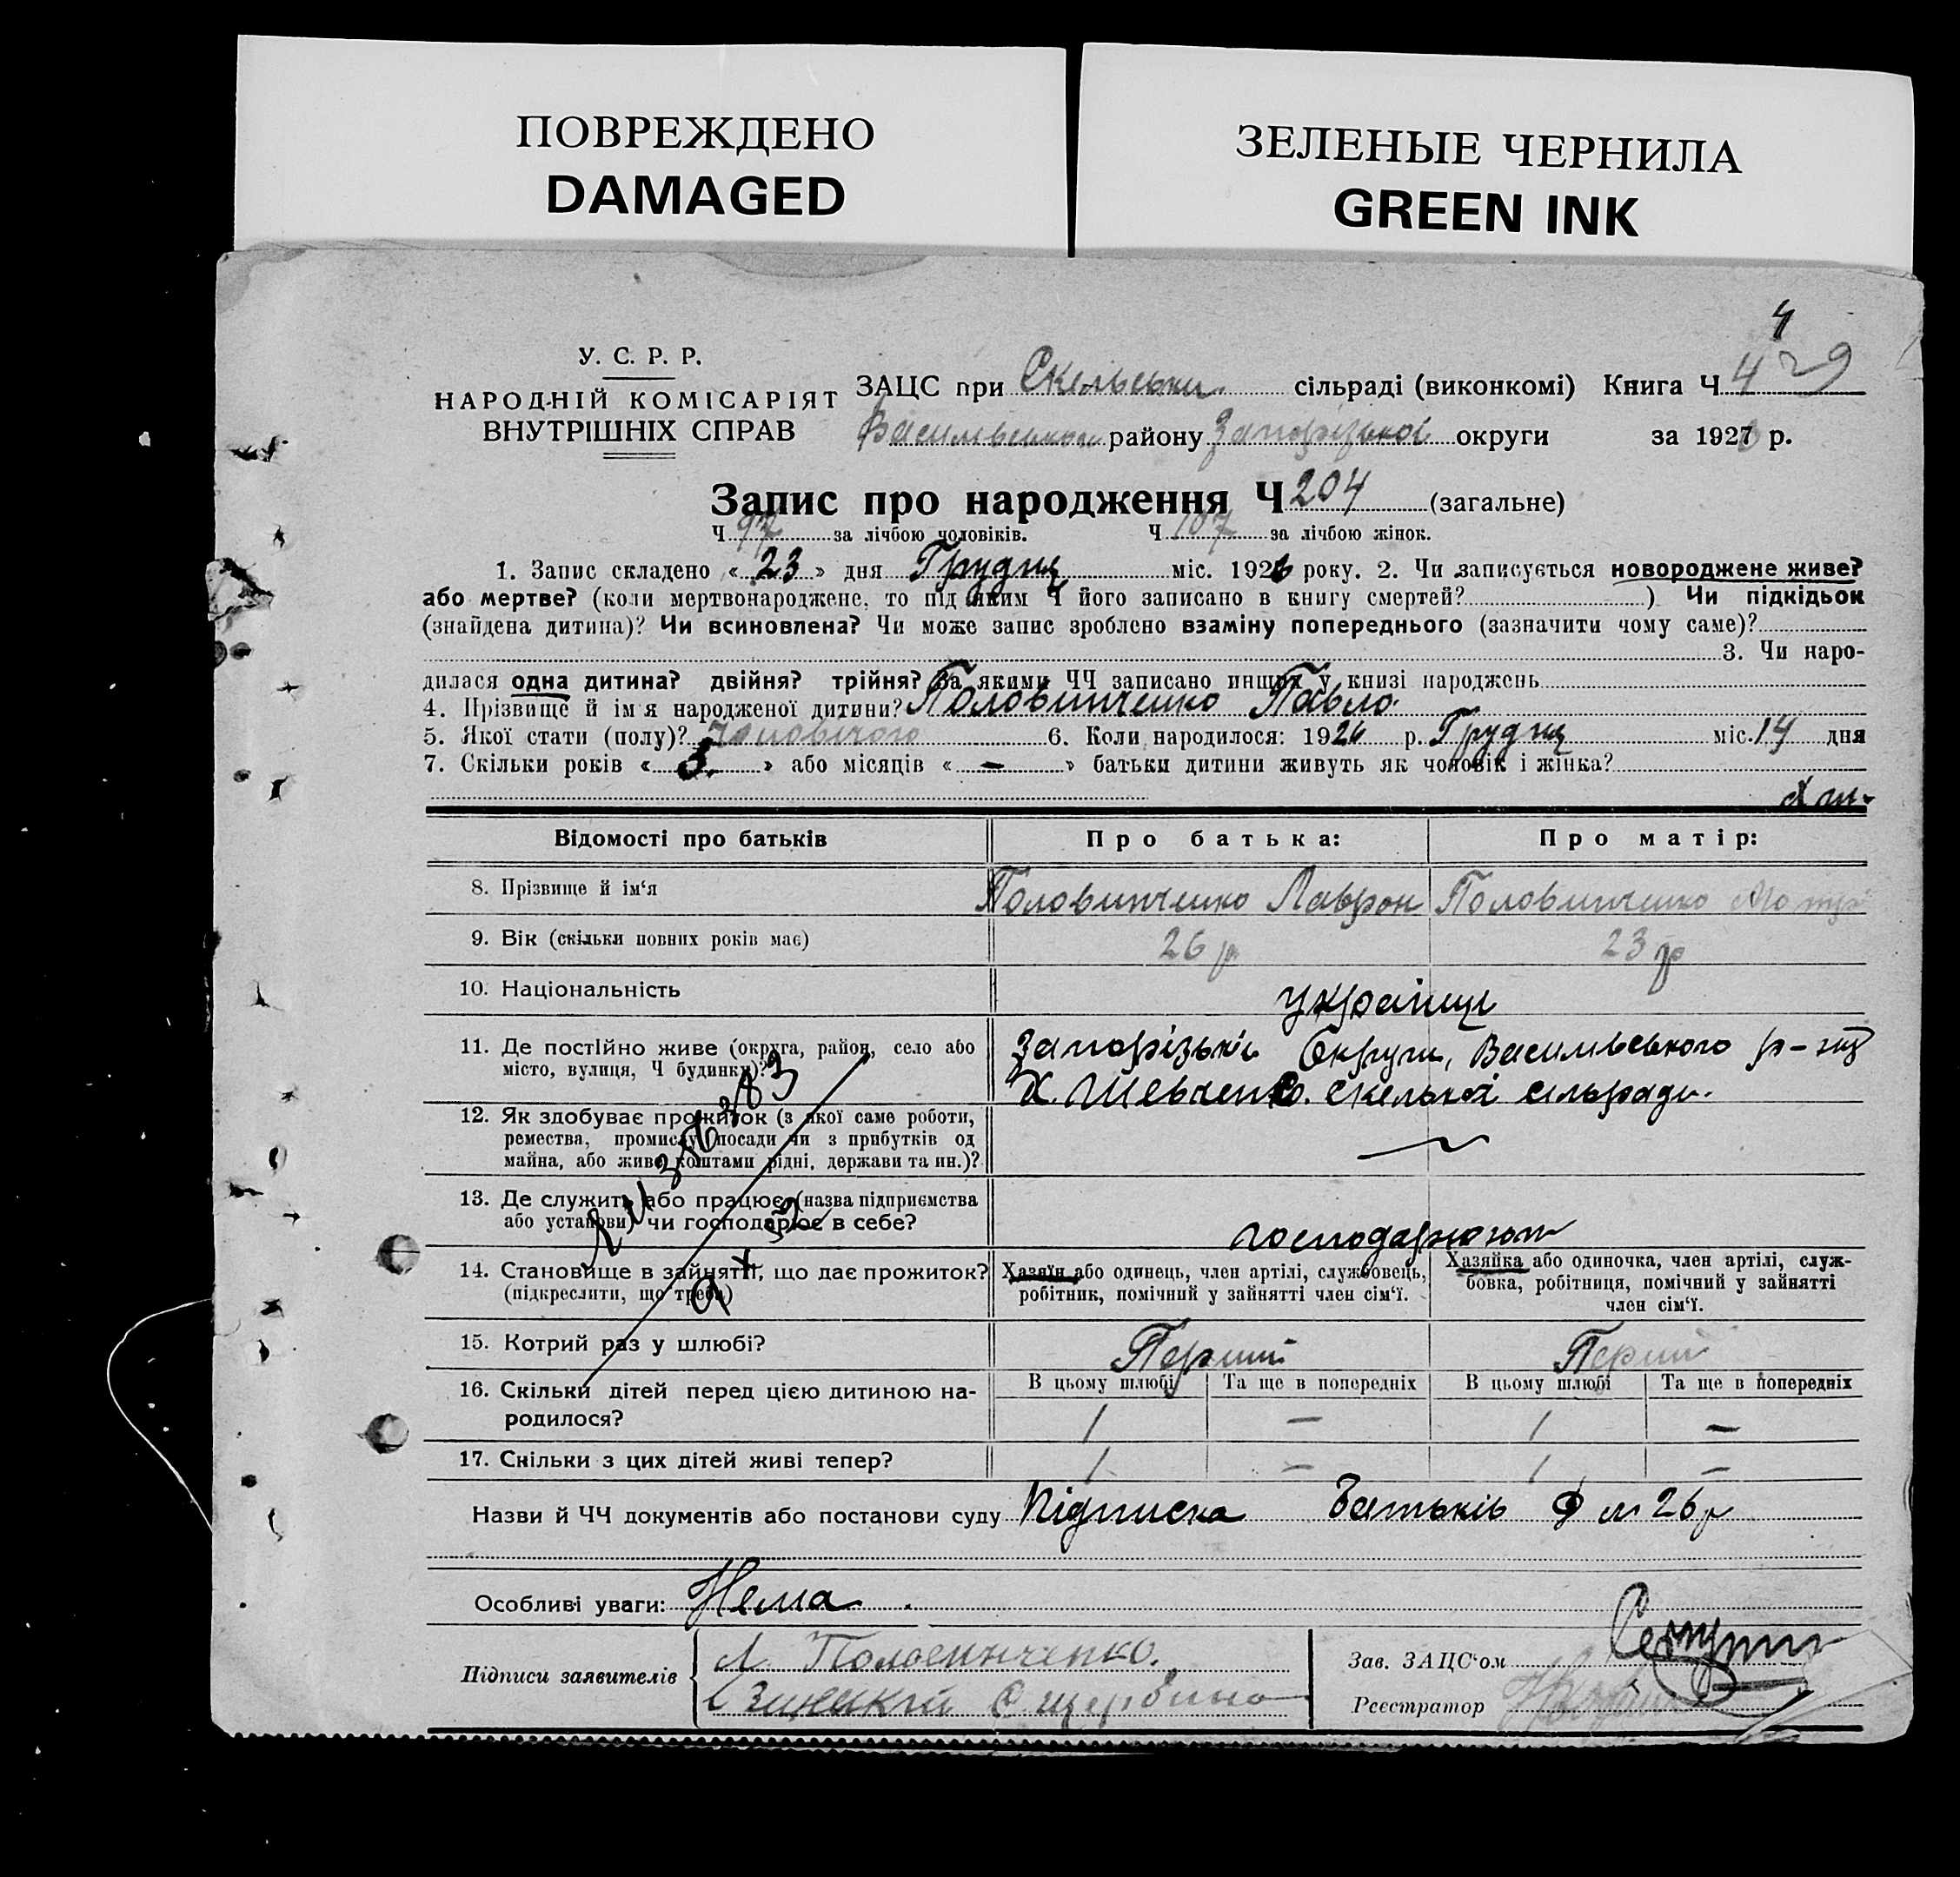 ПОВРЕЖДЕНО
DAMAGED
ЗЕЛЕНЫЕ ЧЕРНИЛА
GREEN INK
4
У. С. Р. Р.
НАРОДНІЙ КОМІСАРІЯТ
ВНУТРІШНІХ СПРАВ
ЗАЦС при Скельськи. сільраді (виконкомі) Книга Ч 4
Васильвського району Запорізької округи за 1926 р.
Запис про народження Ч 204 (загальне)
Ч 97 за лічбою чоловіків. Ч 107 за лічбою жінок.
1. Запис складено «23» дня Грудня міс. 1926 року. 2. Чи записується новороджене живе?
або мертве? (коли мертвонароджене, то під яким Ч його записано в книгу смертей? ) Чи підкідьок
(знайдена дитина)? Чи всиновлена? Чи може запис зроблено взаміну попереднього (зазначити чому саме)?
3. Чи наро-
дилася одна дитина? двійня? трійня? За якими ЧЧ записано инших у книзі народжень
4. Прізвище й ім'я народженої дитини? Половинченко Павло.
5. Якої стати (полу)? Чоловічого 6. Коли народилося: 1926 р. Грудня міс. 14 дня
7. Скільки років « 5. » або місяців « — » батьки дитини живуть як чоловік і жінка?
Відомості про батьків Про батька: Про матір:
8. Прізвище й ім'я Половинченко Лаврон Половинченко
9. Вік (скільки повних років має) 26 р 23 р
10. Національність Українці
11. Де постійно живе (округа, район, село або Запорізькі Округи, Васильвського р-ну
місто, вулиця, Ч будинку)? Х. Шевченко. Скелької сільради.
12. Як здобуває прожиток (з якої саме роботи,
ремества, промислу, посади чи з прибутків од
майна, або живе коштами рідні, держави та ин.)?
13. Де служить або працює (назва підприємства
або установи) чи господарює в себе? господарюють
14. Становище в зайнятті, що дає прожиток? Хазяїн або одинець, член артілі, службовець, Хазяйка або одиночка, член артілі, служ-
(підкреслити, що треба) робітник, помічний у зайнятті член сім'ї. бовка, робітниця, помічний у зайнятті
член сім'ї.
15. Котрий раз у шлюбі? Перший Перший
16. Скільки дітей перед цією дитиною на- В цьому шлюбі Та ще в попередніх В цьому шлюбі Та ще в попередніх
родилося? 1 — 1 —
17. Скільки з цих дітей живі тепер? 1 — 1 —
Назви й ЧЧ документів або постанови суду Підписка Батьків 26 р
Особливі уваги: Нема.
Підписи заявителів Л. Половинченко.
С Щербина
Зав. ЗАЦС'ом
Реєстратор